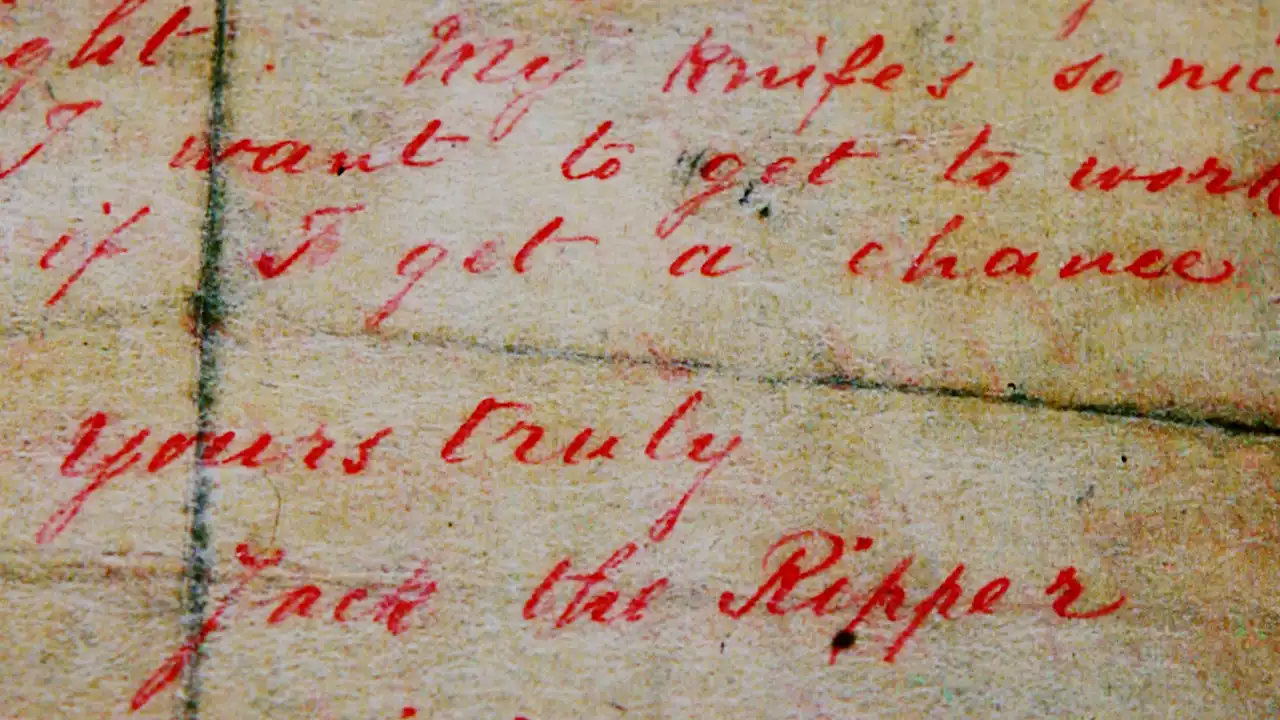 ght. My knife's so nic
I want to get to work
if I get a chance
yours truly
Jack the Ripper